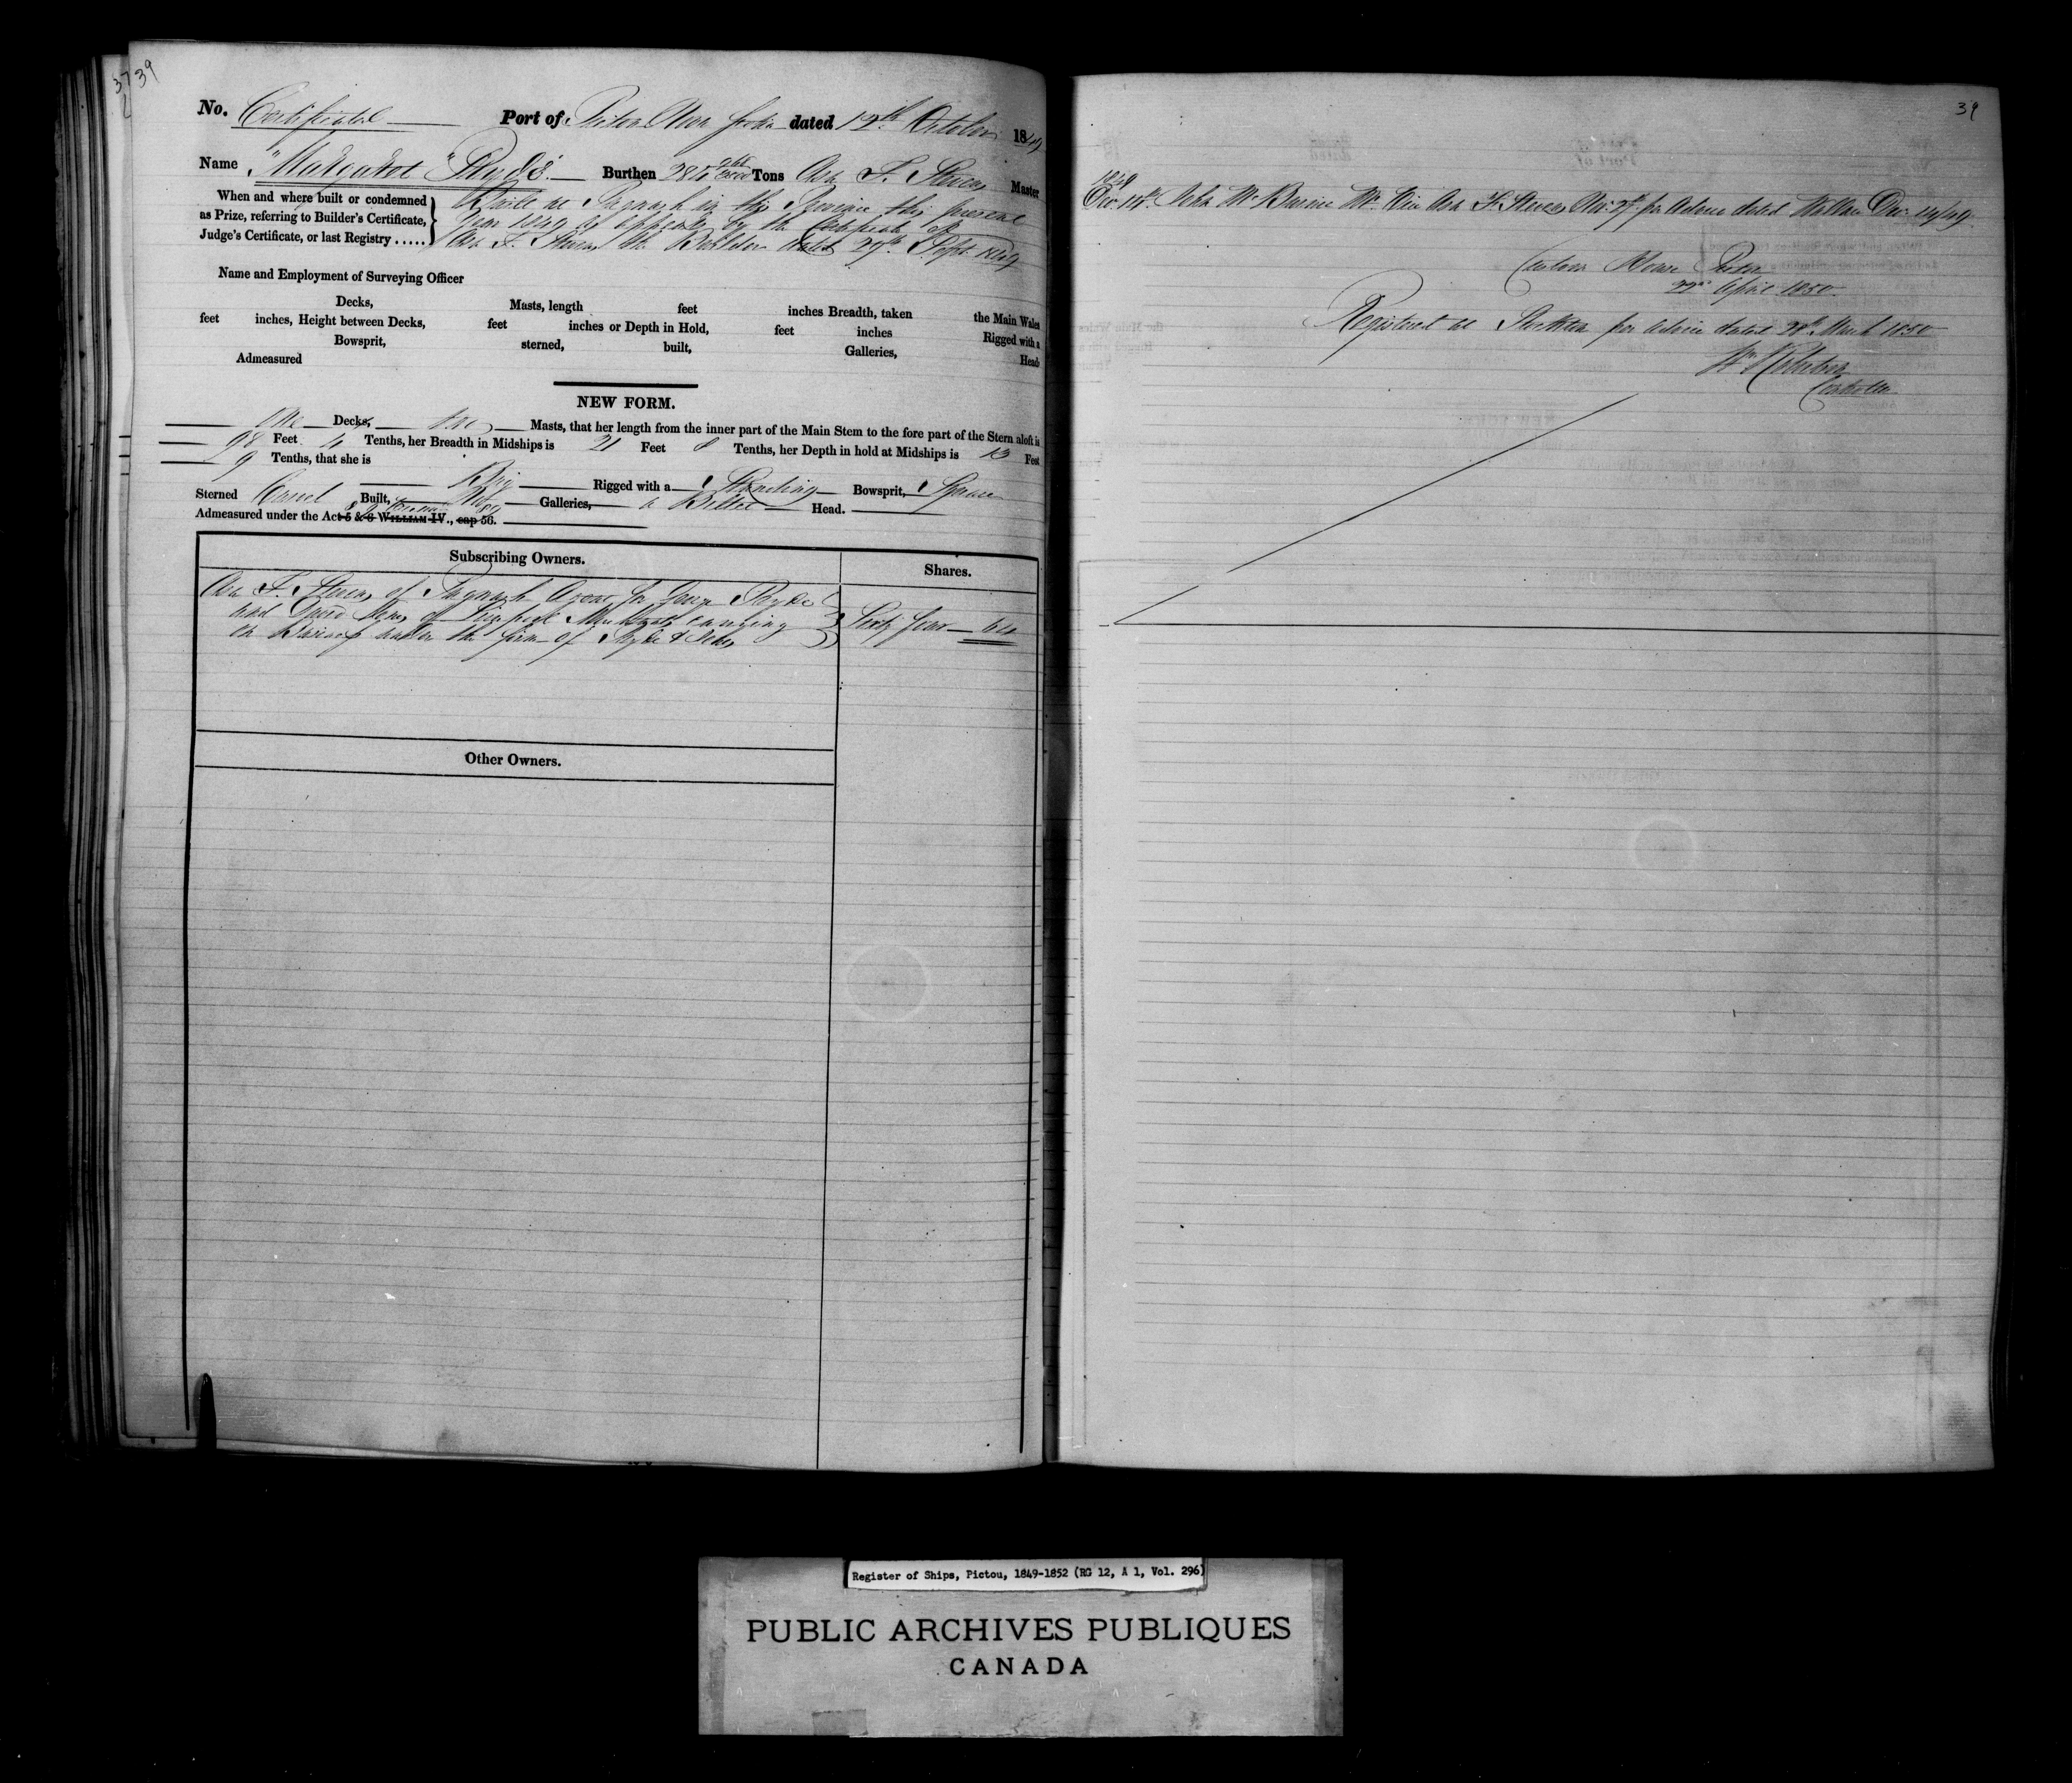 37 39
No. Certificated Port of Pictou Nova Scotia dated 12th October 1849
Name "Margaret Pryde" Burthen Tons Asa F. Steven Master
When and where built or condemned
as Prize, referring to Builder's Certificate,
Judge's Certificate, or last Registry .....
Built at Pugwash in this Province this present
year 1849 as appears by the Certificate of
Asa F. Steven the Builder dated 27th Sept. 1849
Name and Employment of Surveying Officer
Decks, Masts, length feet inches Breadth, taken the Main Wales
feet inches, Height between Decks, feet inches or Depth in Hold, feet inches Rigged with a
Bowsprit, sterned, built, Galleries, Head
Admeasured
NEW FORM.
One Decks, two Masts, that her length from the inner part of the Main Stem to the fore part of the Stern aloft is
98 Feet 4 Tenths, her Breadth in Midships is 21 Feet 8 Tenths, her Depth in hold at Midships is 13 Feet
9 Tenths, that she is Brig Rigged with a Standing Bowsprit, Square
Sterned Carvel Built, No Galleries, a Billet Head.
Admeasured under the Act 5 & 6 WILLIAM IV., cap 56.
Subscribing Owners. Shares.
Asa F. Steven of Pugwash Agent for George Pryde
and David Jones of Liverpool Merchants carrying
on Business under the firm of Pryde & Jones
Sixty four 64
Other Owners.
39
1849
Dec. 14th. John Mc Master Asa F. Steven per Advice dated Wallace Dec. 14/49
Custom House Pictou
22nd April 1850
Registered at per Advice dated 28th March 1850
Controller
Register of Ships, Pictou, 1849-1852 (RG 12, A 1, Vol. 296)
PUBLIC ARCHIVES PUBLIQUES
CANADA